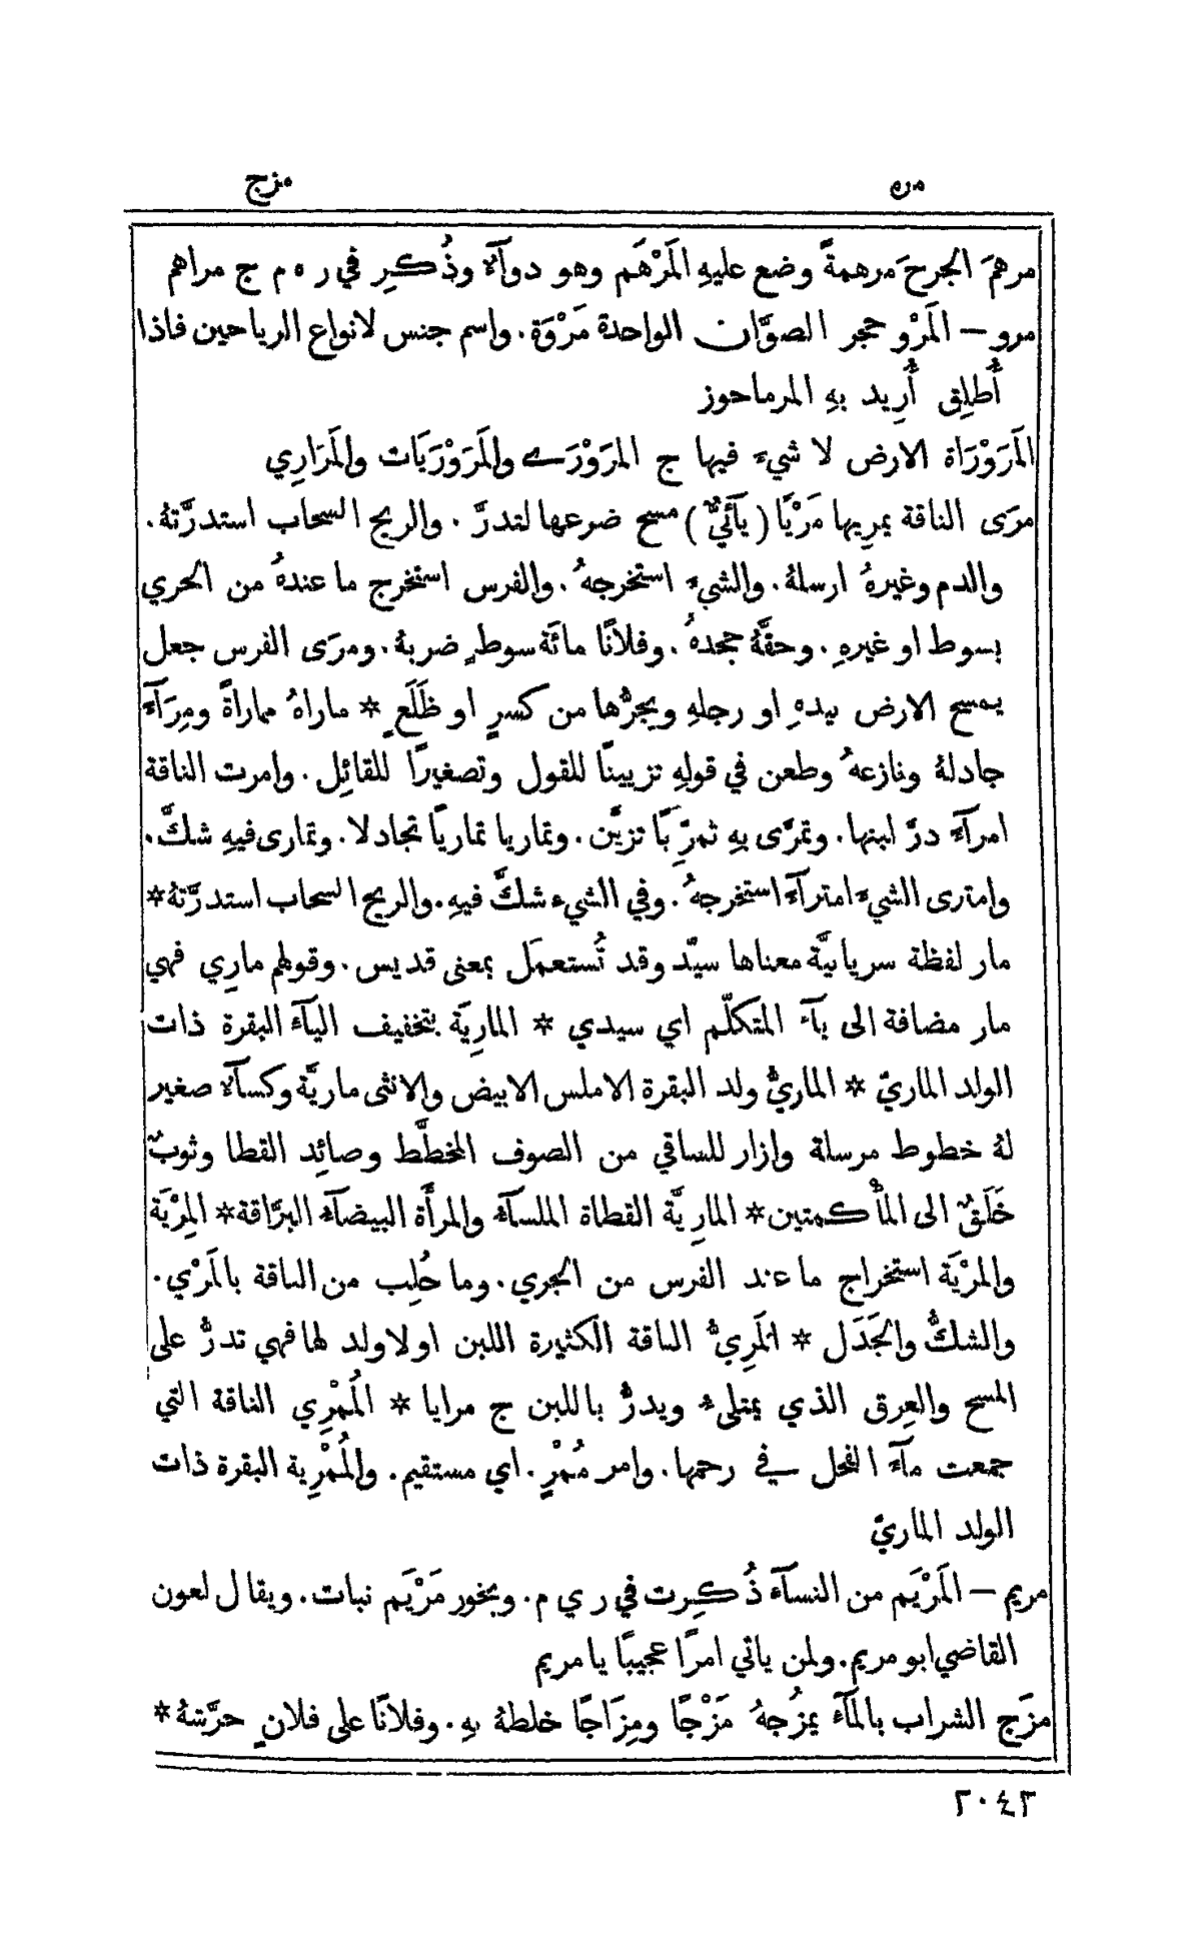 مره
مزج
مرهمَ الجرحَ مرهمةً وضع عليهِ المَرْهَم وهو دوآءٌ وذُكِر في ر ه م ج مراهم
مرو — المَرْو حجر الصوَّان الواحدة مَرْوَة. واسم جنس لانواع الرياحين فاذا
أُطلِق أُرِيد بهِ المرماحوز
المَرَوْرَاة الارض لا شيءَ فيها ج المرَوْرَے والمَرَوْرَيَات والمَرَارِي
مرَى الناقة يمرِيها مَرْيًا (يآئيٌّ) مسح ضرعها لتدرَّ. والريح السحاب استدرَّتهُ.
والدم وغيرهُ ارسلهُ. والشيءَ استخرجهُ. والفرس استخرج ما عندهُ من الحري
بسوط او غيرهِ. وحقَّهُ جحدهُ. وفلانًا مائَة سوطٍ ضربهُ. ومرَى الفرس جعل
يمسح الارض بيدهِ او رجلهِ ويجرُّها من كسرٍ او ظَلَعٍ * ماراهُ مماراةً ومِرَآءً
جادلهُ ونازعهُ وطعن في قولهِ تزيينًا للقول وتصغيرًا للقائِل. وامرت الناقة
امرآءً درَّ لبنها. وتمرَّى بهِ تمرِّيًا تزيَّن. وتماريا تماريًا تجادلا. وتمارى فيهِ شكَّ.
وامترى الشيءَ امترآءً استخرجهُ. وفي الشيء شكَّ فيهِ. والريح السحاب استدرَّتهُ *
مار لفظة سريانيَّة معناها سيِّد وقد تُستعمَل بمعنى قديس. وقولهم مارِي فهي
مار مضافة الى يآءِ المتكلّم اي سيدي * المارِيَة بتخفيف اليآءِ البقرة ذات
الولد الماريّ * الماريُّ ولد البقرة الاملس الابيض والانثى ماريَّة وكسآءٌ صغير
لهُ خطوط مرسلة وازار للساقي من الصوف المخطَّط وصائِد القطا وثوبٌ
خَلَقٌ الى المأْكمتين * المارِيَّة القطاة الملسآءُ والمرأَة البيضآءُ البرَّاقة * المِرْيَة
والمرْيَة استخراج ما عند الفرس من الجري. وما حُلِب من الناقة بالمَرْي.
والشكُّ والجَدَل * المَرِيُّ الناقة الكثيرة اللبن او لا ولد لها فهي تدرُّ على
المسح والعِرق الذي يمتلیءُ ويدرُّ باللبن ج مرايا * المُمْرِي الناقة التي
جمعت مآءَ الفحل في رحمها. وامر مُمْرٍ. اي مستقيم. والمُمْرِية البقرة ذات
الولد الماريّ
مريم — المَرْيَم من النسآءِ ذُكِرت في ر ي م. وبخور مَرْيَم نبات. ويقال لعون
القاضي ابو مريم. ولمن ياتي امرًا عجيبًا يا مريم
مزَج الشراب بالمآءِ يمزُجهُ مَزْجًا ومِزَاجًا خلطهُ بهِ. وفلانًا على فلانٍ حرَّشهُ *
٢٠٤٢